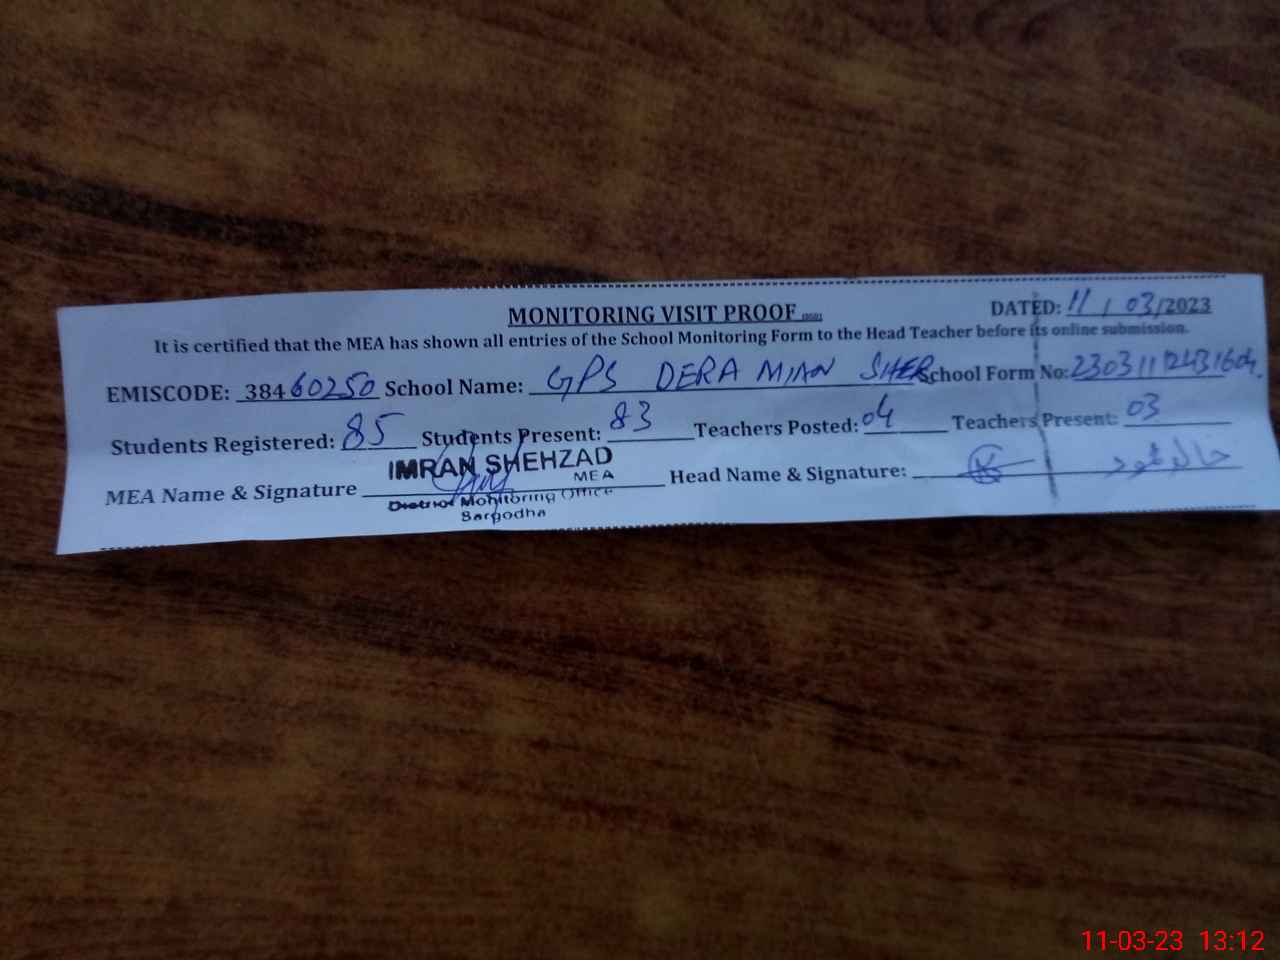 MONITORING VISIT PROOF DATED: 11/03/2023
It is certified that the MEA has shown all entries of the School Monitoring Form to the Head Teacher before its online submission.
EMISCODE: 38460250 School Name: GPS DERA MIAN SHER School Form No:
Students Registered: 85 Students Present: 83 Teachers Posted: 04 Teachers Present: 03
IMRAN SHEHZAD
MEA
MEA Name & Signature Head Name & Signature:
District Monitoring Office
Sargodha
11-03-23 13:12